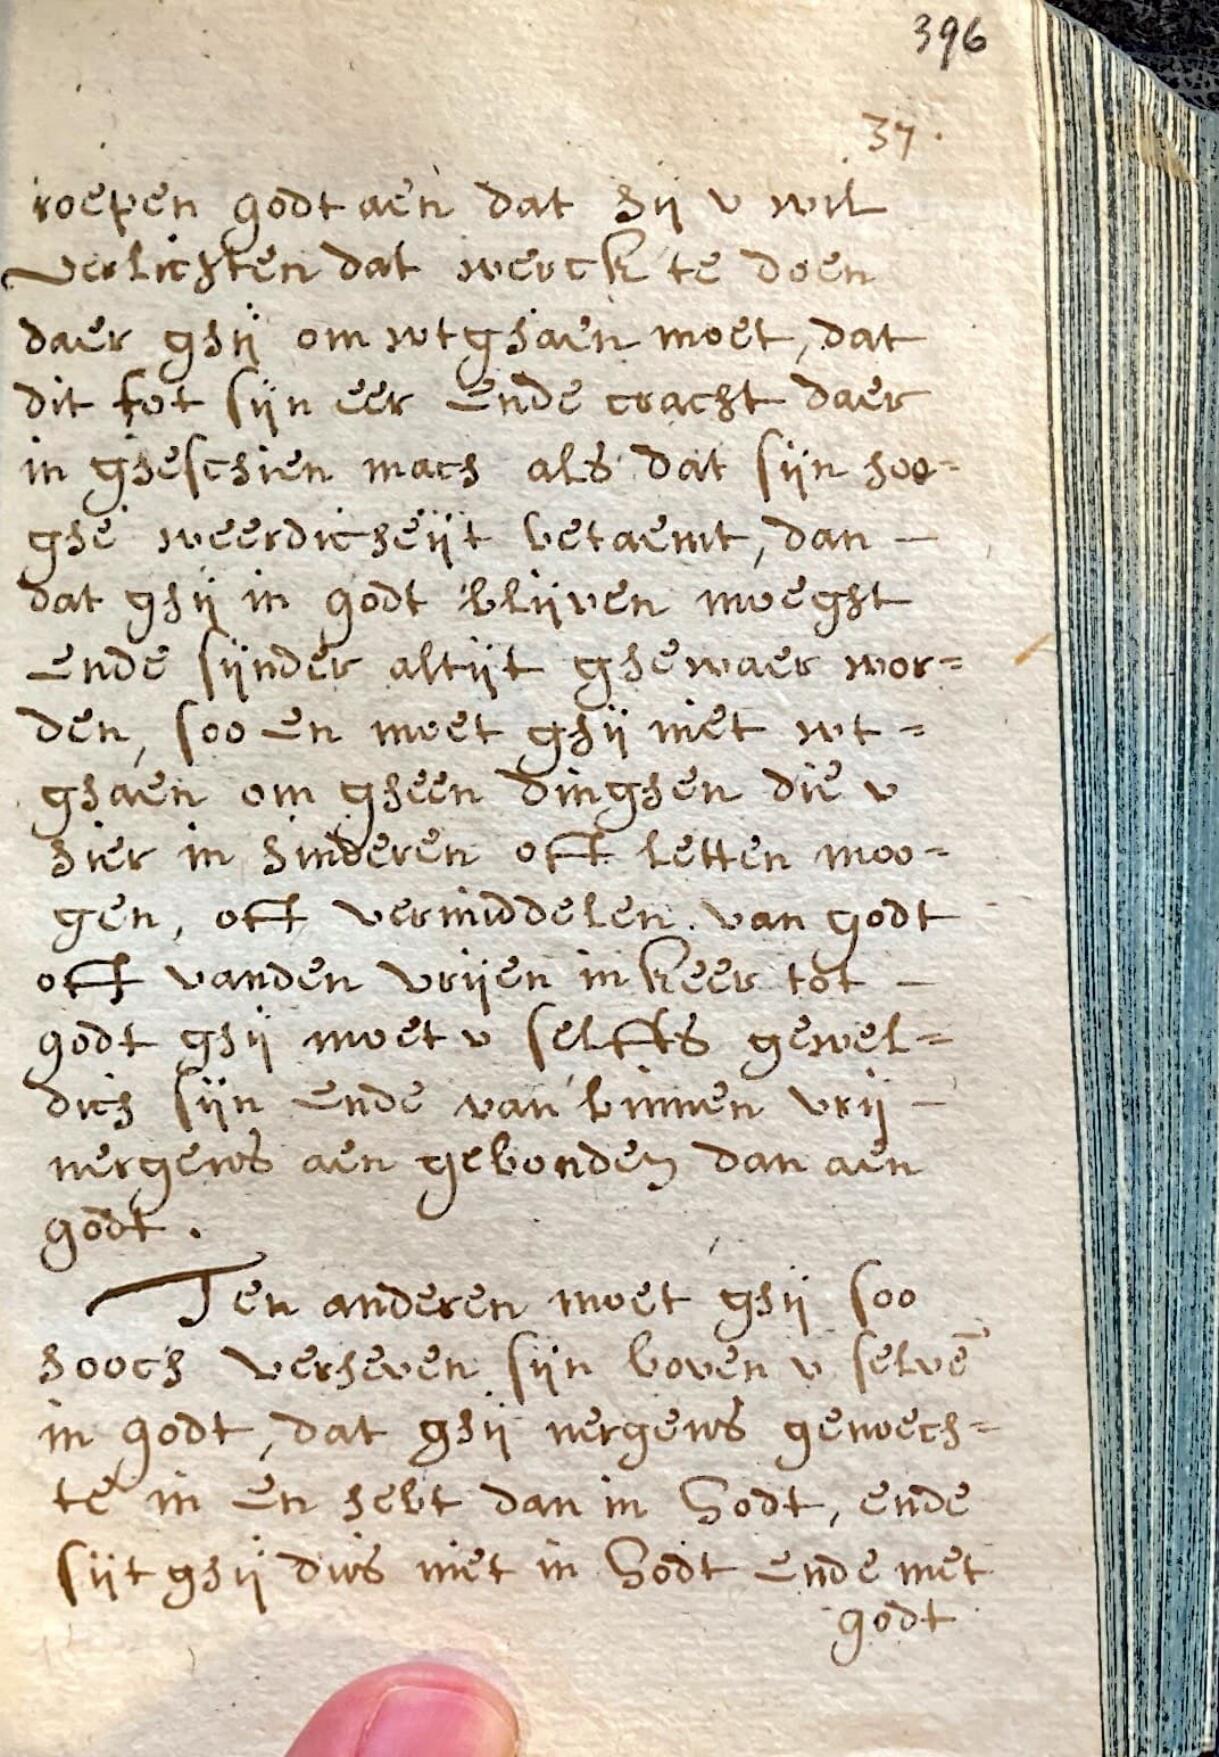 396
37.
roepen godt aen dat hij v wil
verlichten dat werck te doen
daer ghij om wtghaen moet, dat
dit tot sijn eer ende cracht daer
in gheschien mach als dat sijn hoo=
ghe weerdicheijt betaemt, dan —
dat ghij in godt blijven moeght
ende sijnder altijt ghewaer wor=
den, soo en moet ghij niet wt=
ghaen om gheen dinghen die v
hier in hinderen oft letten moo=
gen, oft vermiddelen van godt
oft vanden vrijen inkeer tot —
godt ghij moet v selffs gewel=
dich sijn ende van binnen vrij —
nergens aen gebonden dan aen
godt.
Ten anderen moet ghij soo
hooch verheven sijn boven v selvē
in godt, dat ghij nergens genoech=
te in en hebt dan in Godt, ende
sijt ghij dus niet in Godt ende met
godt